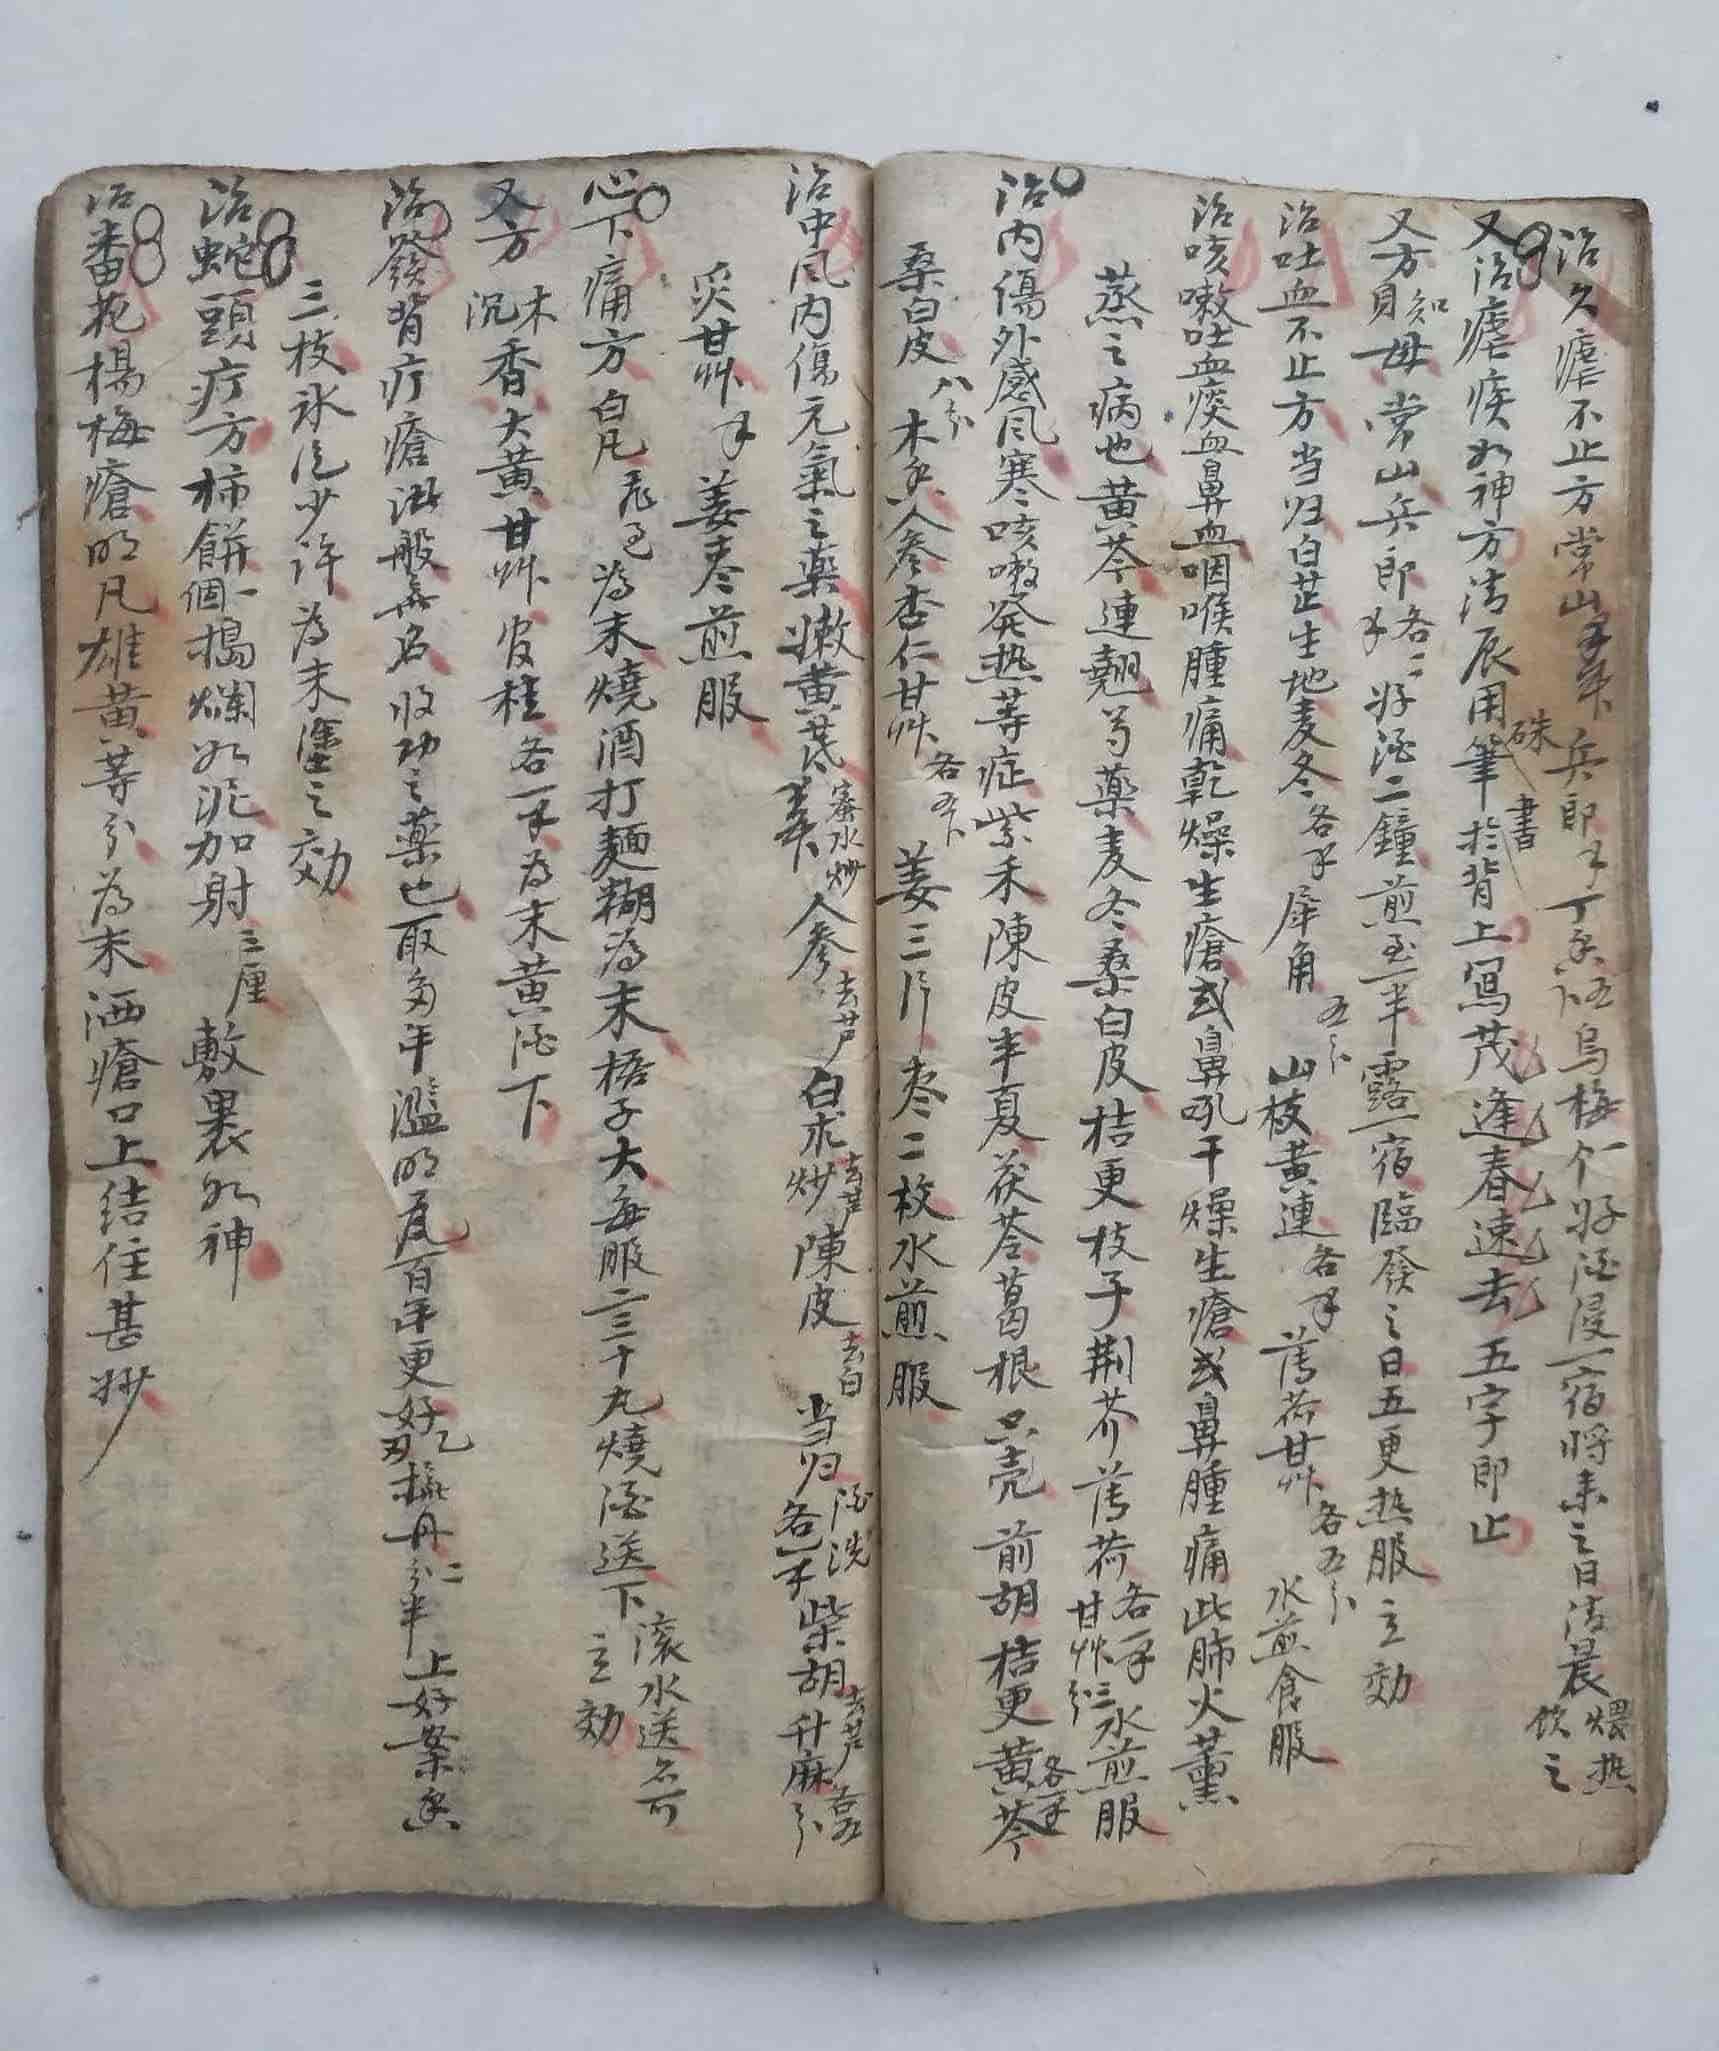 治久瘧不止方常山兵郎丁香烏梅一个好酒浸一宿將來之日清晨煨热飲之
又治瘧疾如神方清辰用硃筆書於背上写茂逢春速去五字即止
又方貝知母常山兵郎各二好酒二鐘煎至一半露一宿臨發之日五更热服立効
治吐血不止方当归白芷生地麦冬各犀角五分山枝黄連各薄荷甘艸各五分水煎食服
治咳嗽吐血痰血鼻血咽喉腫痛乾燥生瘡或鼻吼干燥生瘡或鼻腫痛此肺火薰
蒸之病也黄芩連翹芍薬麦冬桑白皮桔更枝子荆芥薄荷各一甘艸三分水煎服
治内傷外感风寒咳嗽発热等症紫禾陳皮半夏茯苓葛根只壳前胡桔更黄芩各
桑白皮八分木香人參杏仁甘艸各五卜姜三片枣二枚水煎服
治中风内傷元氣之薬嫩黄芪蜜水炒人參去芦白朮去芦炒陳皮去白当归酒洗各柴胡去芦升麻各五分
炙甘艸姜枣煎服
心下痛方白凡為末燒酒打麺糊為末梧子大每服二三十丸燒酒送下滚水送亦可立効
又方木沉香大黄甘艸官桂各一為末黄酒下
治發背疔瘡諸般無名收功之薬也取多年濫明瓦百年更好乙刄樟丹二分半上好安息香
三枝氷片少许為末塗之効
治蛇頭疔方柿餅一個搗爛如泥加射三厘敷裹如神
治番花楊梅瘡明凡雄黄等分為末洒瘡口上结住甚妙